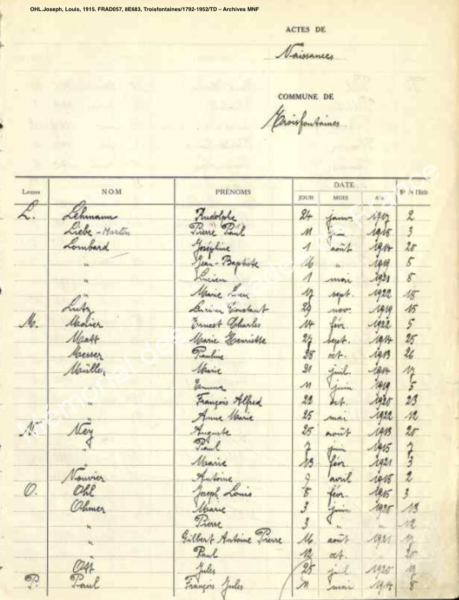 OHL.Joseph, Louis, 1915. FRAD057, 8E683, Troisfontaines/1792-1952/TD – Archives MNF
ACTES DE
Naissances
COMMUNE DE
Troisfontaines
DATE
Lettres NOM PRÉNOMS JOUR MOIS
L. Lehmann Rudolphe 24 janv. 2
Liebe-Martin Pierre Paul 11 juin 1915 3
Lombard Joséphine 1 août 1914 25
" Jean-Baptiste 16 " 1919 8
" Lucien 1 mai 8
" Marie 17 sept. 1922 15
Lutz Lucien Constant 29 nov. 1919 15
M. Ernest Charles 14 fév. 1922 5
Matt Marie Henriette 24 sept. 1914 25
Messer Pauline 28 oct. 1913 26
Müller Marie 21 juil 1914 17
" 11 juin 1919 5
" François Alfred 22 oct. 23
" Anne Marie 25 mai 1922 12
N. Ney Auguste 25 août 1913 25
" Paul 7 juin 1915 7
" Marie 13 fév. 1921 3
Antoine 9 avril 1915 2
O. Ohl Joseph Louis 8 fév. 1915 3
Ohmer Marie 3 juin 13
" Pierre 3 " " 12
" Gilbert Antoine Pierre 16 août 1921 17
" Paul 12 oct. 20
Ott Jules 25 juil 1920 19
P. Paul François Jules 11 mai 1914 8